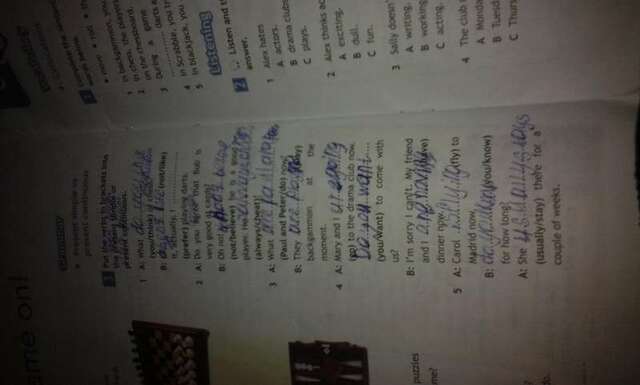 ame on!
Grammar
• Present simple vs
present continuous
1 Put the verbs in brackets into
the present simple or
present continuous.
1 A: What do you think
(you/think) of chess?
B: (not/like)
it, actually, I ............
(prefer) playing darts.
2 A: Do you agree that Bob is
very good at cards?
B: Oh no!
(not/believe) he is a good
player. He
(always/cheat)!
3 A: What
(Paul and Peter/do) now?
B: They are
backgammon at the
moment.
4 A: Mary and I are going
(go) to the drama club now.
Do you want
(you/want) to come with
us?
B: I'm sorry I can't. My friend
and I are having (have)
dinner now.
5 A: Carol is flying (fly) to
Madrid now.
B: do you know (you/know)
for how long?
A: She usually stays
(usually/stay) there for a
couple of weeks.
puzzles
me?
do.
Vocabulary
1 Complete the sentences
words below.
• move • roll • th
1 In backgammon, you
2 In chess, the players
on the chessboard.
3 During a game
darts a
4 In Scrabble, you tr
5 In blackjack, you
Listening
2 Listen and
answer.
1 Alex hates
A actors.
B drama clubs
C plays.
2 Alex thinks ac
A exciting.
B dull.
C fun.
3 Sally doesn'
A writing.
B working
C acting.
4 The club
A Monda
B Tuesd
C Thurs